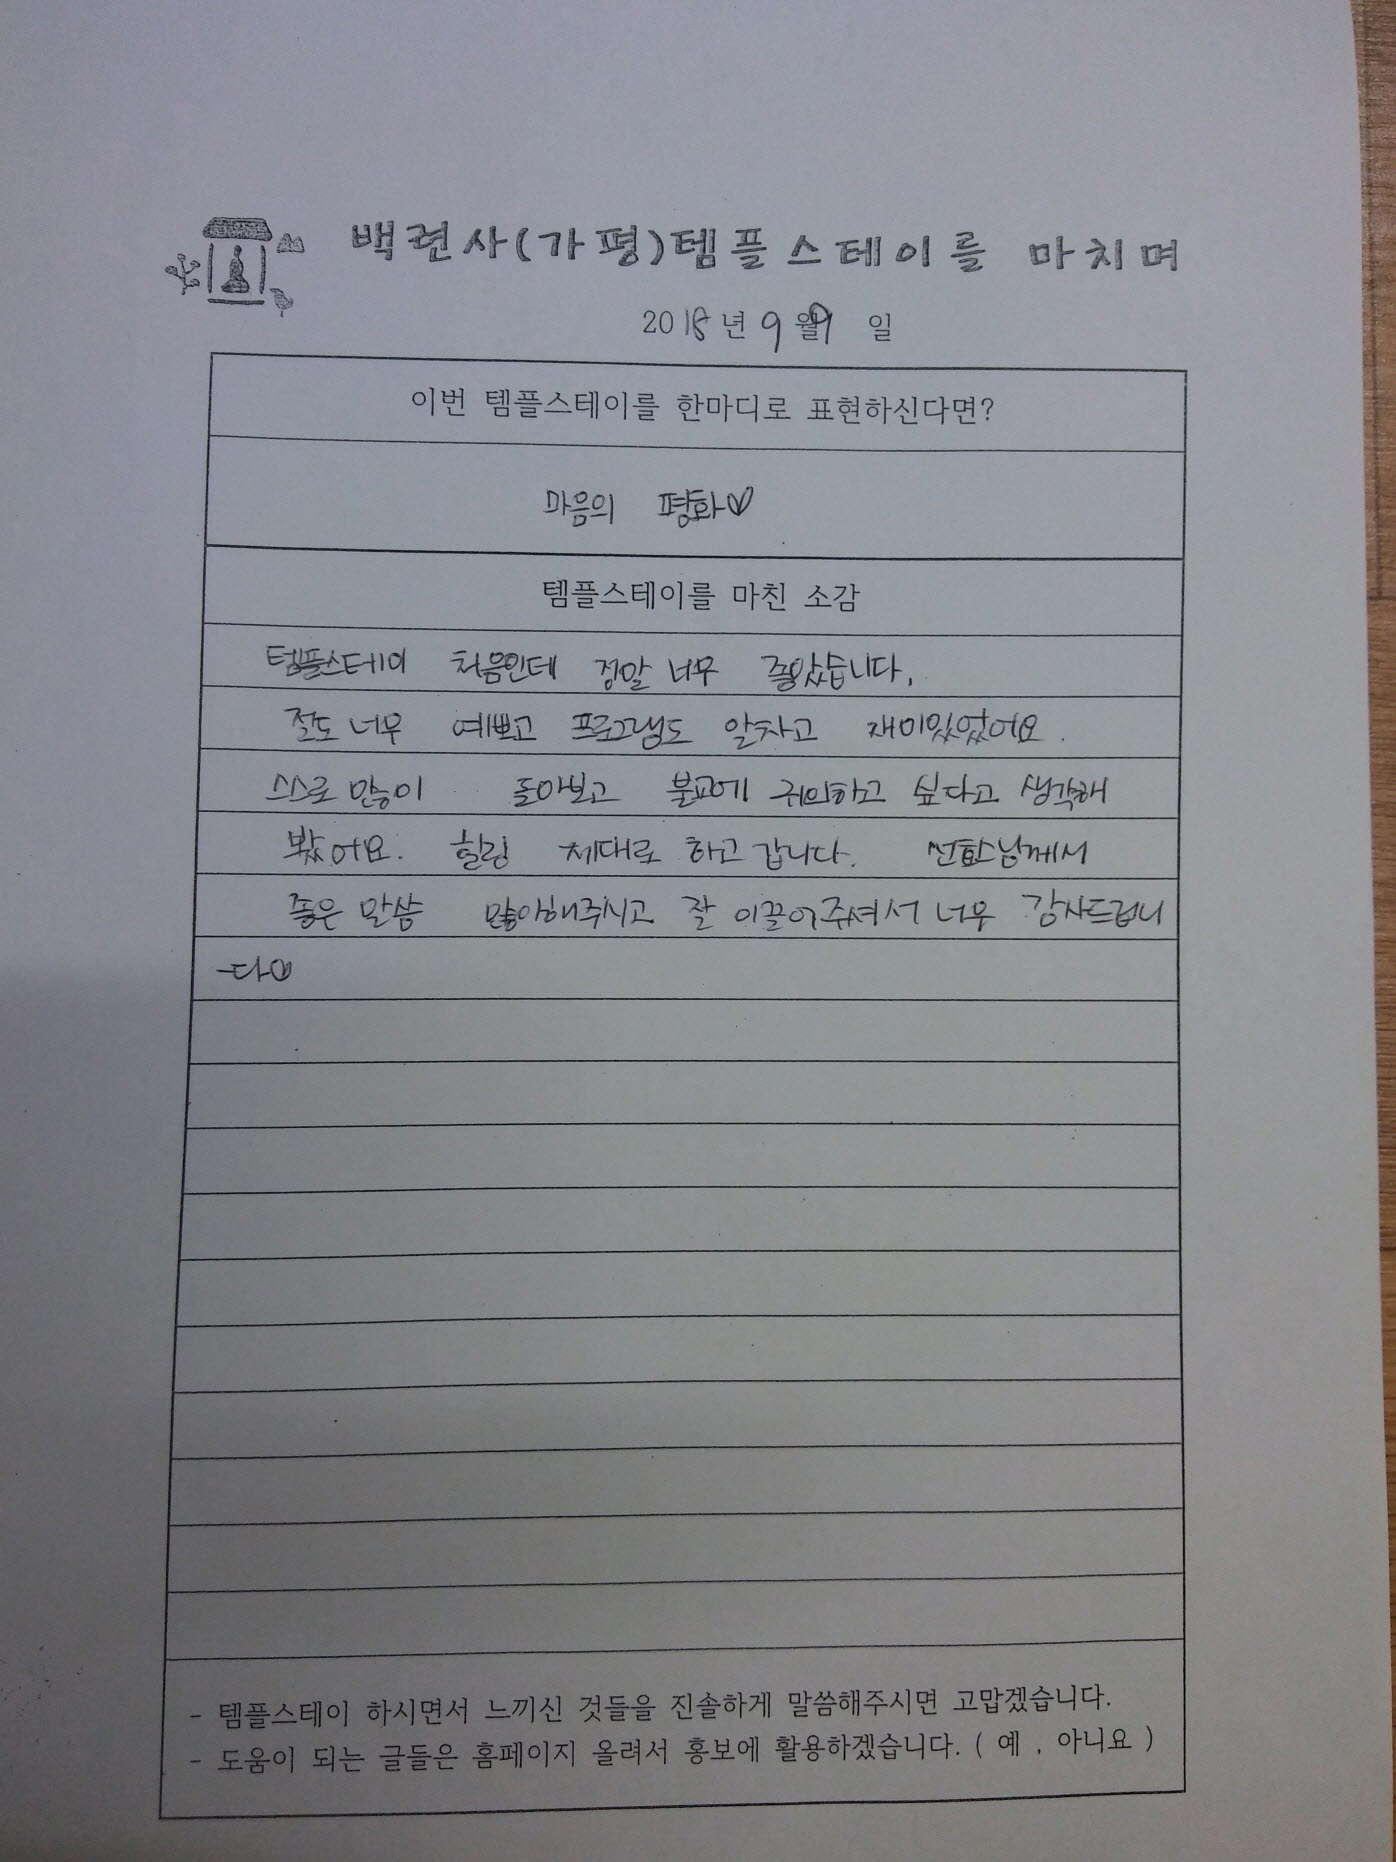 백련사(가평)템플스테이를 마치며
2018년 9월 9일
이번 템플스테이를 한마디로 표현하신다면?
마음의 평화♡
템플스테이를 마친 소감
템플스테이 처음인데 정말 너무 좋았습니다.
절도 너무 예쁘고 프로그램도 알차고 재미있었어요.
스스로 많이 돌아보고 불교에 귀의하고 싶다고 생각해
봤어요. 힐링 제대로 하고 갑니다.
좋은 말씀 많이해주시고 잘 이끌어주셔서 너무 감사드립니
-다♡
- 템플스테이 하시면서 느끼신 것들을 진솔하게 말씀해주시면 고맙겠습니다.
- 도움이 되는 글들은 홈페이지 올려서 홍보에 활용하겠습니다. ( 예 , 아니요 )